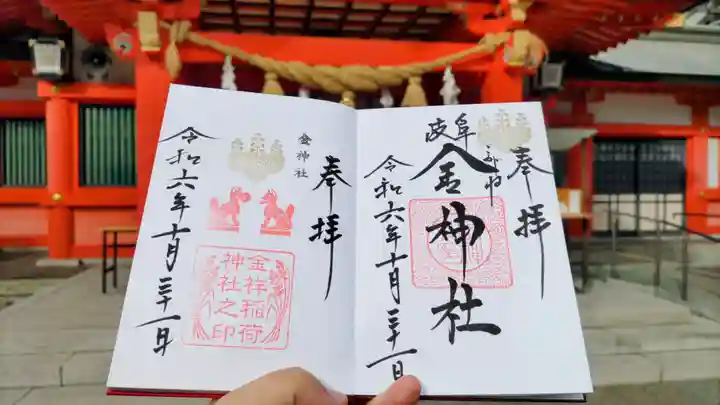 奉拝
岐阜
金神社
令和六年十月三十一日
奉拝
金神社
金祥稲荷
神社之印
令和六年十月三十一日